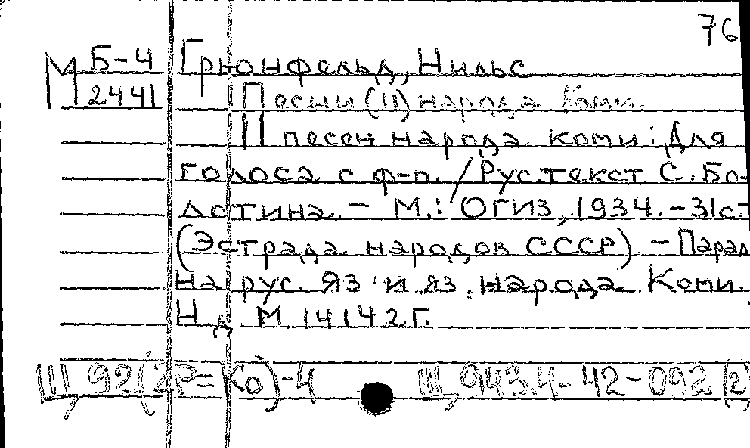 76
Б-4 Грюнфельд, Нильс
М 2441 Песни (11) народа Коми.
11 песен народа коми: Для
голоса с ф-п. / Рус. текст С. Бо-
лотина. - М.: ОГИЗ, 1934. - 31с. -
(Эстрада народов СССР) - Парал
на рус. яз. и яз. народа Коми.
Н.д. М 14142Г.
Щ 92(2Р=Ко)-4 Щ 943.4-42-092 (2)